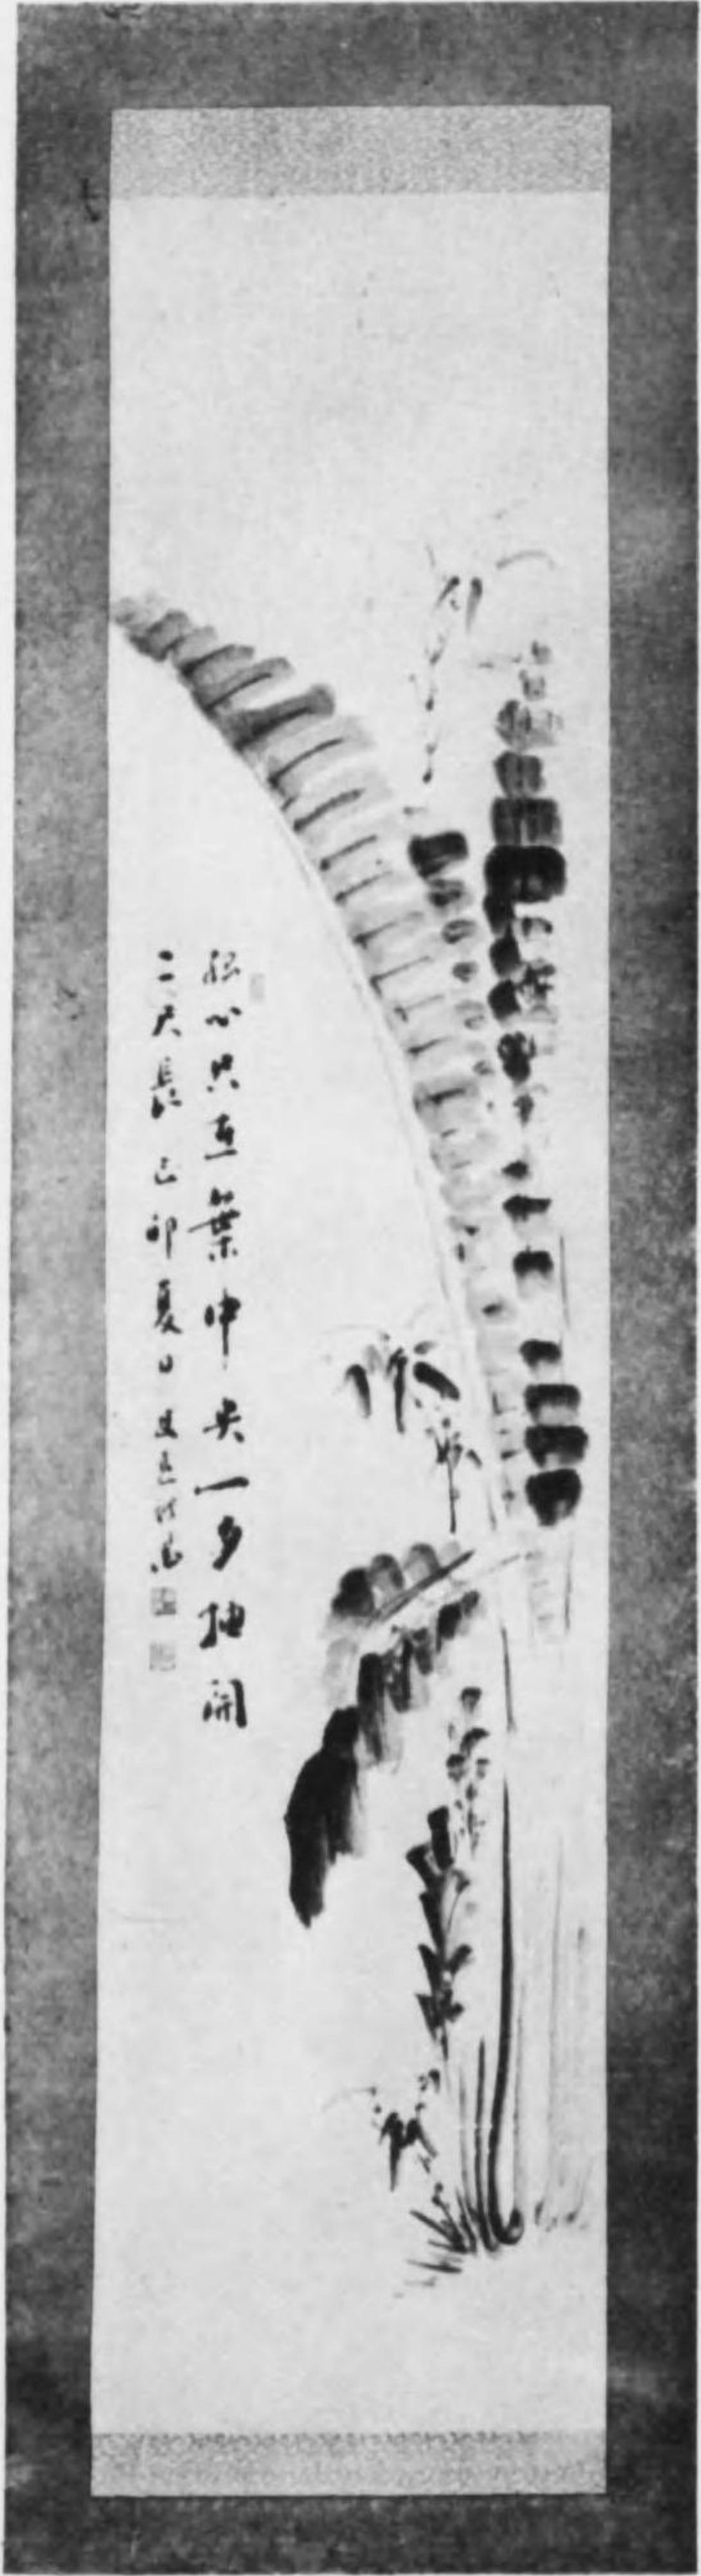 心只在葉中央一夕抽開
二尺長 己卯夏日